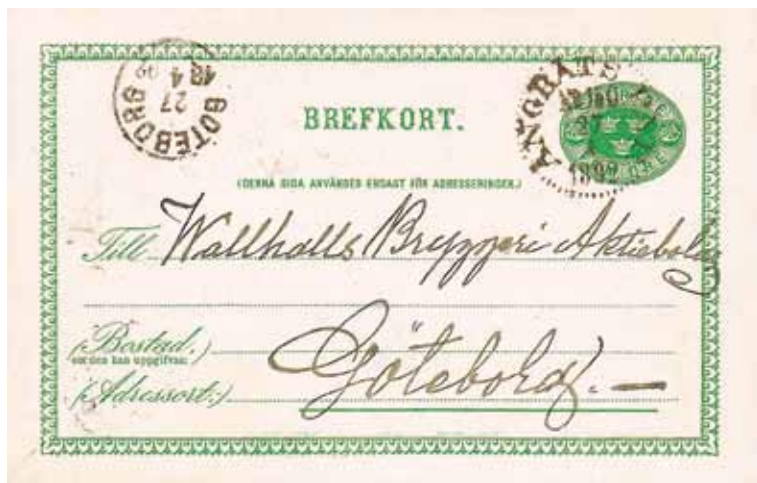 GÖTEBORG
27
4
ÅNGBÅTS
27
1892
BREFKORT.
(DENNA SIDA ANVÄNDES ENDAST FÖR ADRESSERINGEN.)
Till Wallhalls Bryggeri Aktiebolag
(Bostad,)
om den kan uppgifvas:
(Adressort:) Göteborg. —